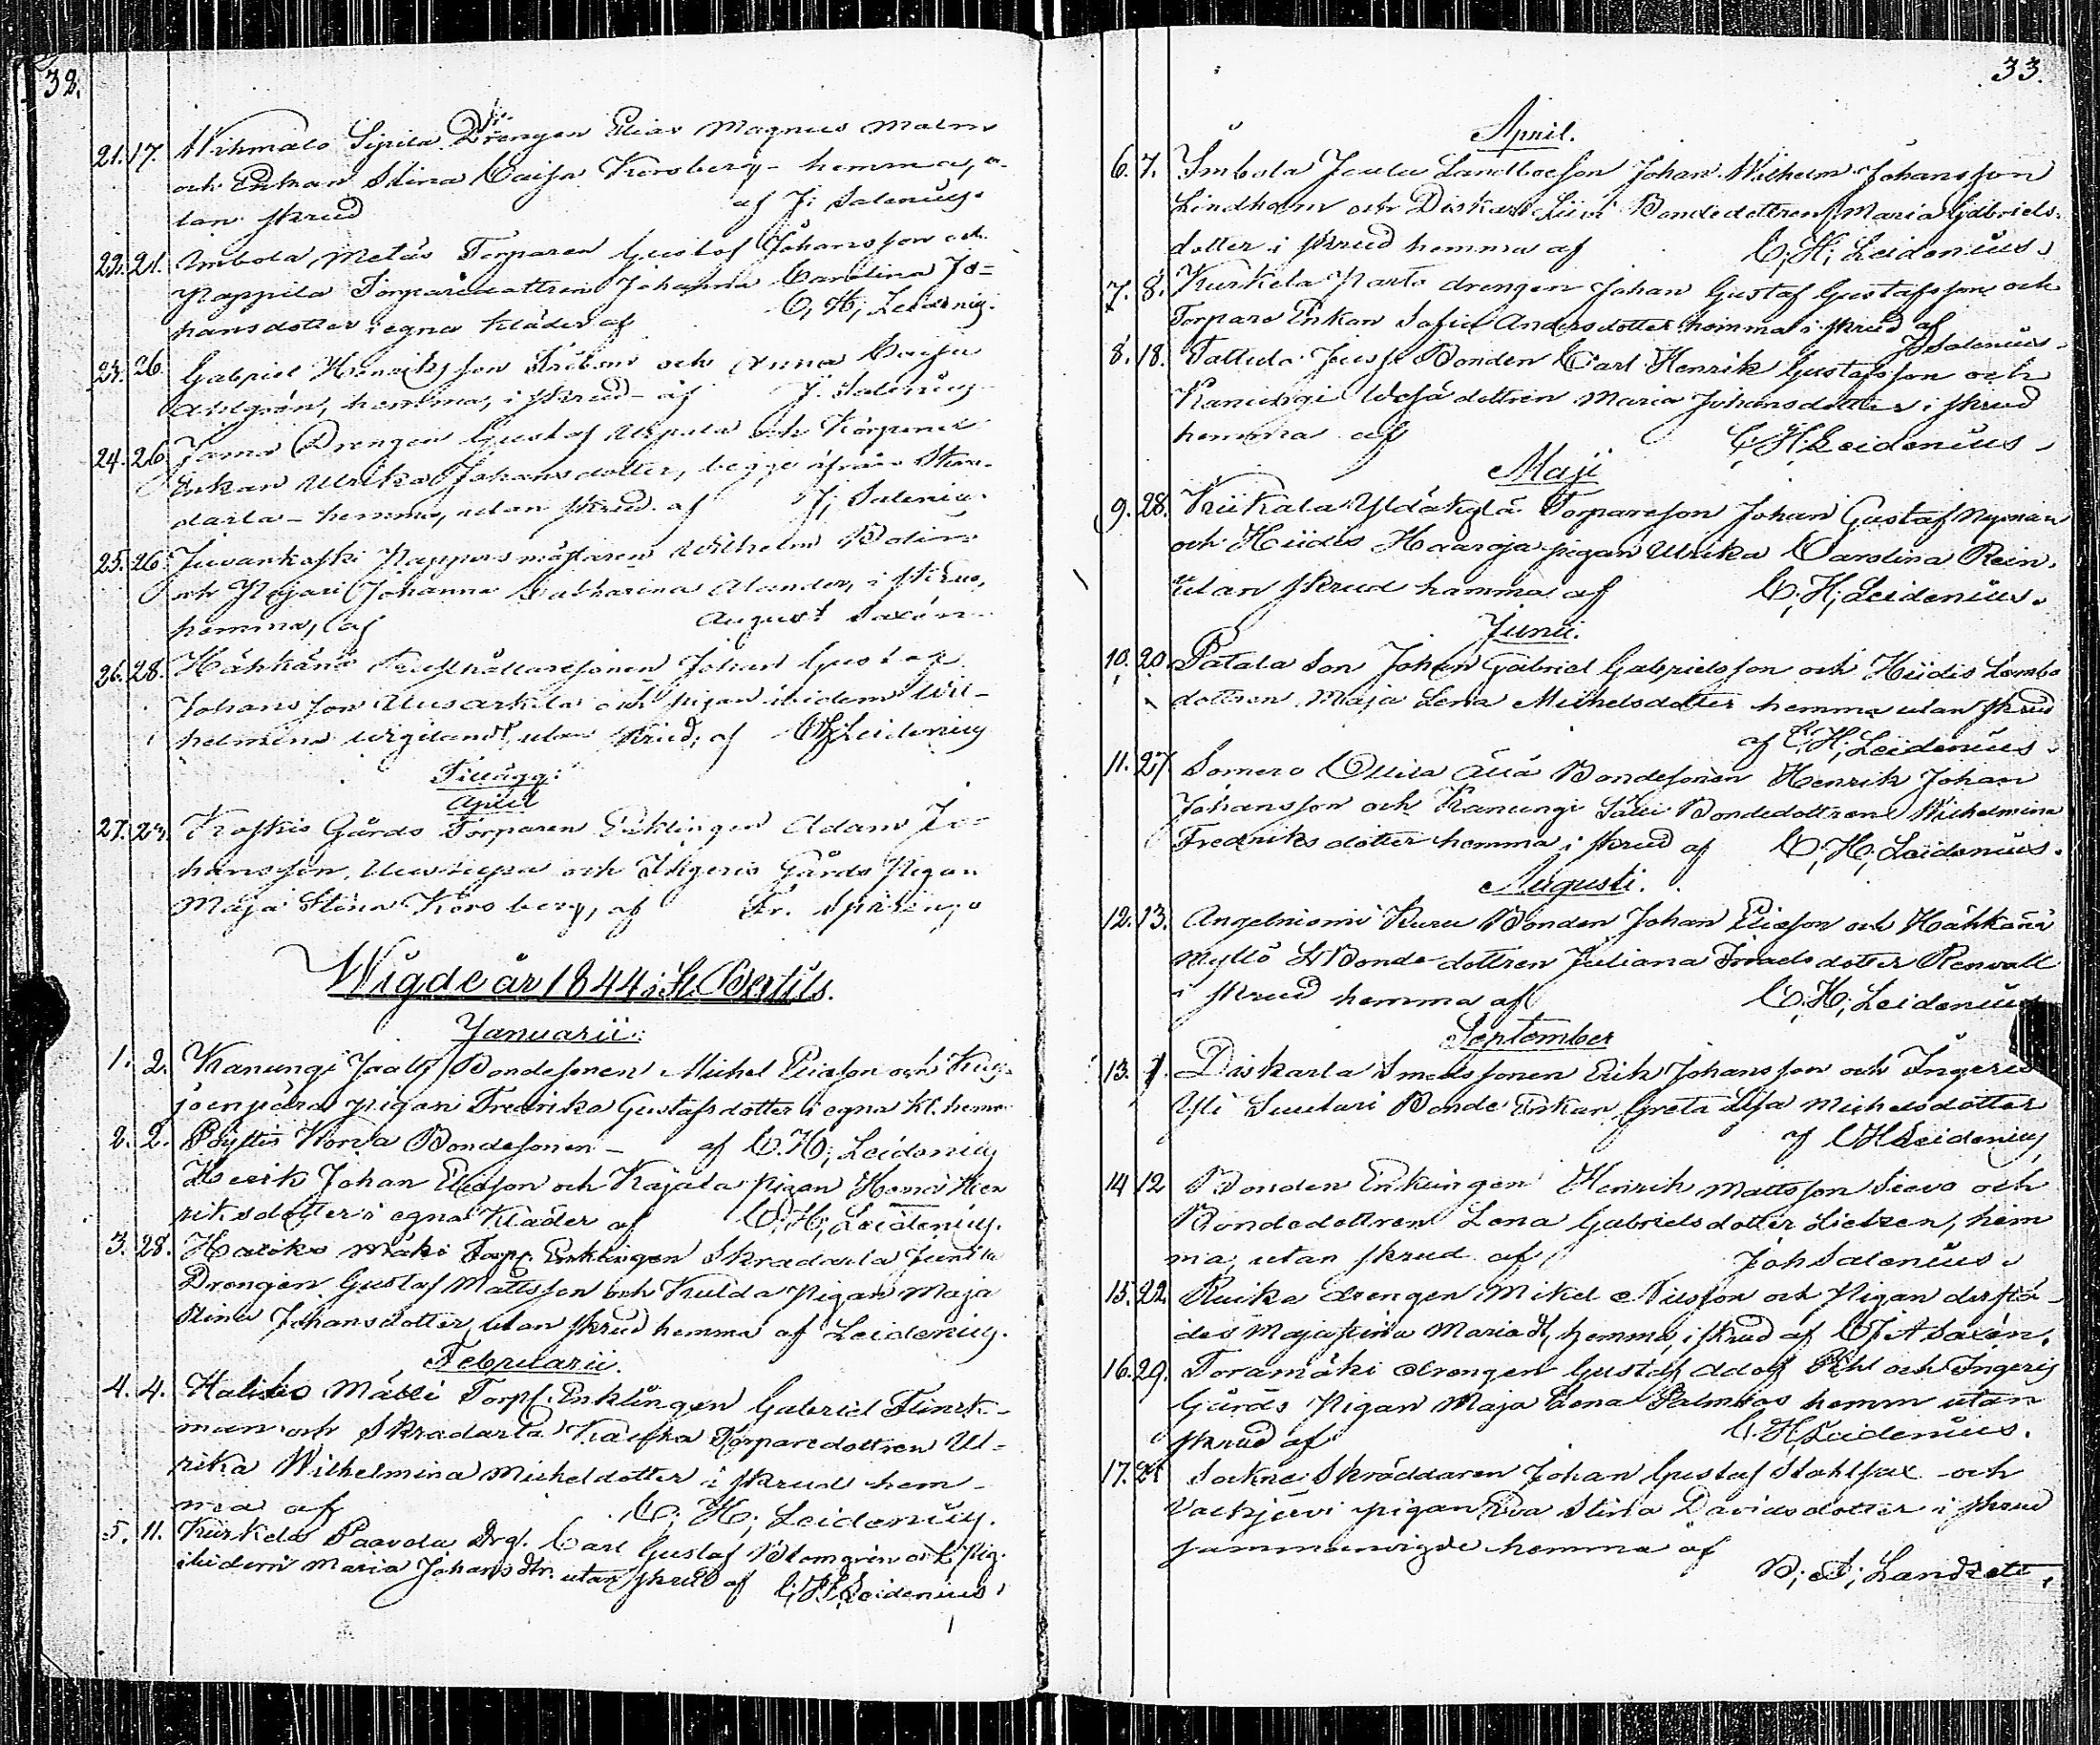 32.
21. 17. Wihmalo Sipila Drengen Elias Magnus Malm
och Enkan Stina Caisa Korsberg - hemma, u-
tan skrud af J. Salenius.
22. 21. Imbola Metäs Torparen Gustaf Johansson och
Pappila Torparedottren Johanna Carolina Jo=
hansdotter i egna kläder af C. H. Leidenius.
23. 26. Gabriel Henriksson och Anna Caisa
hemma, i skrud - af J. Salenius
24. 26. Drengen Gustaf och
Enkan Ulrika Johansdotter, begge ifrån
- hemma, utan skrud af J. Salenius.
25. 26. Juvankoski Pappersmästaren Wilhelm
och Johanna Catharina Alander, i skrud,
hemma, af August Saxén
26. 28. Hähkänä Johan Gustaf
Johansson och pigan ibidem Wil-
helmina utan skrud, af C H Leidenius
Tillägg:
April
27. 23. Koskis Gårds Torparen Enklingen Adam Jo-
hansson, och Gårds Pigan
Maja Stina Korsberg, af Fr.
Wigde år 1844 i St. Bertils.
Januarii:
1. 2. Kanungi Jaatz Bondesonen Michel Eliasson och
pigan Fredrika Gustafsdotter i egna kl. hem
2. 2. Pöytis Bondesonen - af C. H. Leidenius
Henrik Johan Eliasson och Kajala pigan Hen
riksdotter i egna kläder af C. H. Leidenius.
3. 28. Halikko Mäki Torp. Enklingen Skradarla Junila
Drengen Gustaf Mattsson och Kulda Pigan Maja
Stina Johansdotter, utan skrud hemma af Leidenius.
Februarii.
4. 4. Torpf. Enklingen Gabriel Flinck-
man och Skradarla Torparedottren Ul-
rika Wilhelmina Micheldotter i skrud hem-
ma af C. H. Leidenius.
5. 11. Kurkela Paavola Drg. Carl Gustaf Blomgrén och Pig.
ibidem Maria Johansdtr. utan skrud af C. H. Leidenius
33.
April.
6. 7. Imbola Joulu Landboeson Johan Wilhelm Johansson
Lindholm och Diskarla Bondedottren Maria Gabriels-
dotter i skrud hemma af C. H. Leidenius.
7. 8. Kurkela drengen Johan Gustaf Gustafsson och
Torpare Enkan Sofia Andersdotter hemma i skrud af
J Salenius.
8. 18. Tattula Bonden Carl Henrik Gustafsson och
Kanungi dottren Maria Johansdotter i skrud
hemma af C. H. Leidenius.
Maji
9. 28. Kukala Torpareson Johan Gustaf Nyman
och Hiidis Haaroja pigan Ulrika Carolina Rein.
utan skrud hemma af C. H. Leidenius.
Junii.
10. 20. Patala Son Johan Gabriel Gabrielsson och Hiidis
dottren Maja Lena Michelsdotter hemma utan skrud
af C. H. Leidenius.
11. 27. Somero Ollila Bondesonen Henrik Johan
Johansson och Kanungi Bondedottren Wilhelmina
Fredriksdotter hemma i skrud af C. H. Leidenius.
Augusti.
12. 13. Angelniemi Kuru Bonden Johan Eliasson och Hähkänä
Bonde dottren Juliana Renvall
i skrud hemma af C. H. Leidenius
September
13. 1. Diskarla Smedssonen Erik Johansson och Ingeris
Yli Suutari Bonde Enkan Greta Lisa Michelsdotter
af C H Leidenius,
14 12 Bonden Enklingen Henrik Mattsson och
Bondedottren Lena Gabrielsdotter hem
ma, utan skrud af Joh Salenius.
15. 22. drengen Mikel Nilsson och Pigan derstä-
des Maja Stina hemma, i skrud af Saxén.
16. 29. Toramäki drengen Gustaf Adolf och Ingeris
Gårds Pigan Maja Lena Palmroos hemm utan
skrud af C. H Leidenius.
17. Sockne Skräddaren Johan Gustaf och
pigan Eva Stina Davidsdotter i skrud
sammanvigde hemma af
Landzett.